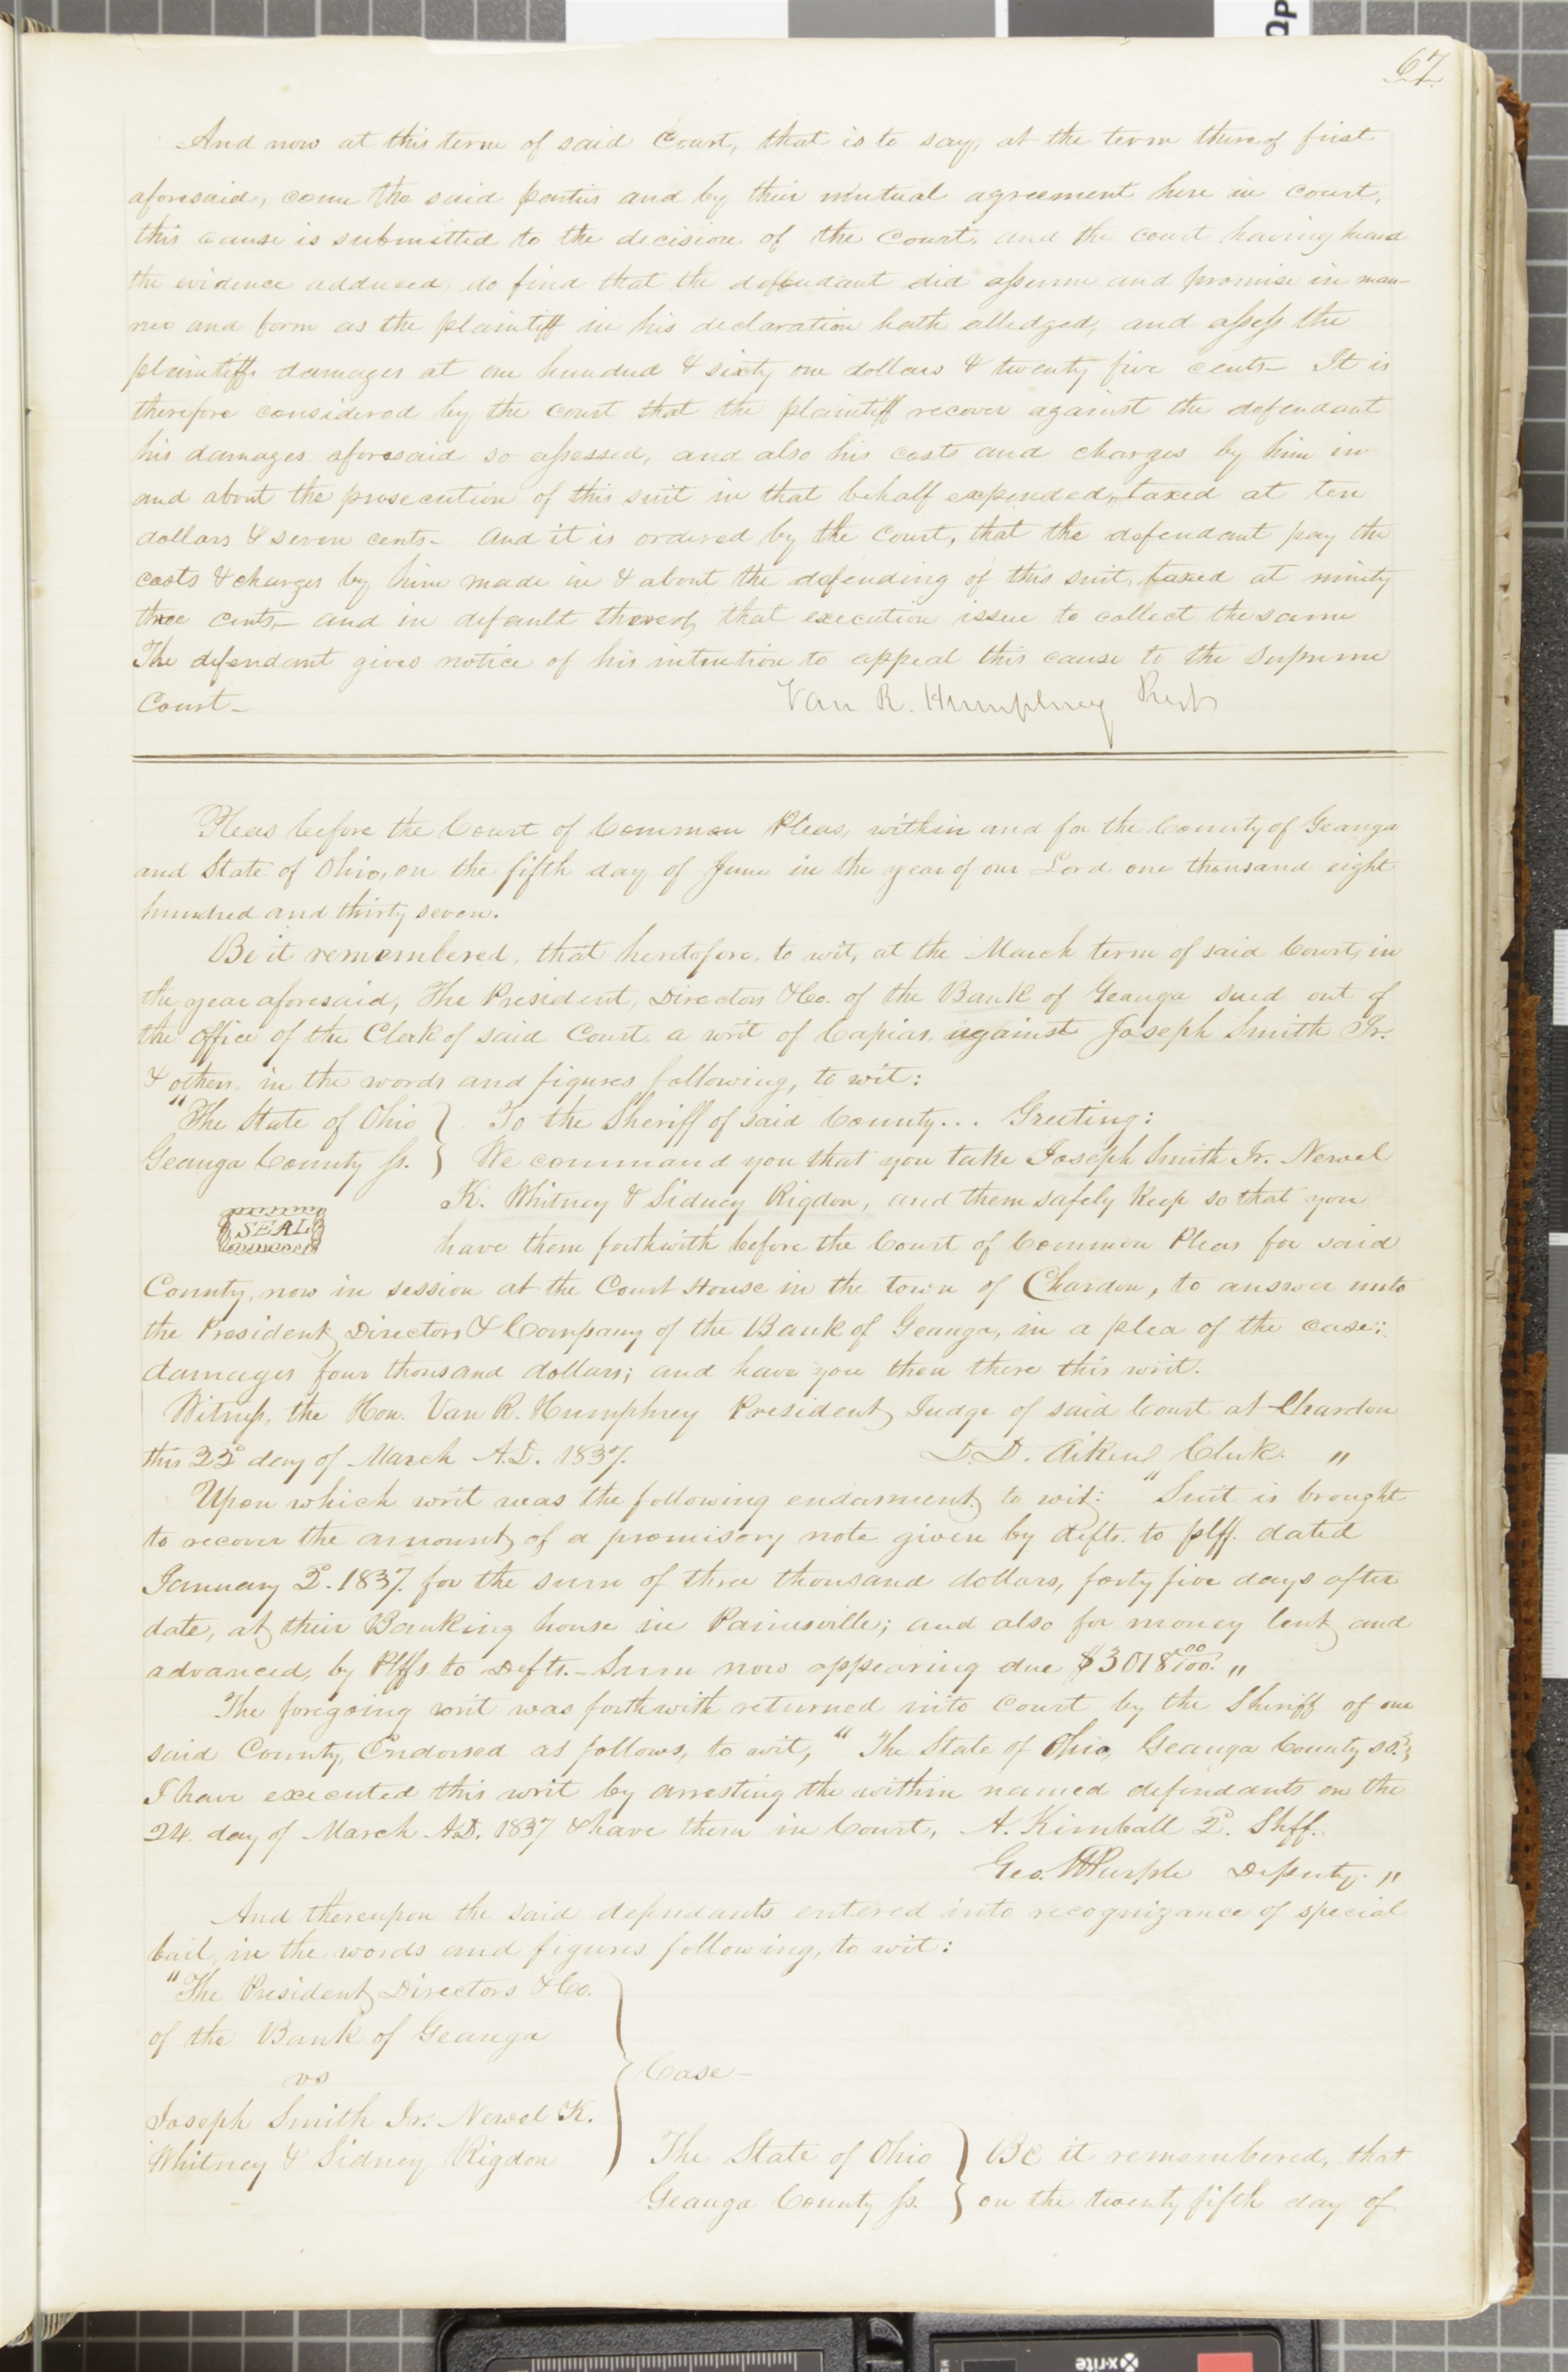 67
And now at this term of said Court, that is to say, at the term thereof first
aforesaid, come the said parties and by their mutual agreement here in Court,
this cause is submitted to the decision of the Court, and the court having heard
the evidence adduced, do find that the defendant did assume and promise in man-
ner and form as the plaintiff in his declaration hath alledged, and assess the
plaintiffs damages at one hundred & sixty one dollars & twenty five cents— It is
therefore considered by the court that the plaintiff recover against the defendant
his damages aforesaid so assessed, and also his costs and charges by him in
and about the prosecution of this suit in that behalf expended, taxed at ten
dollars & seven cents— And it is ordered by the Court, that the defendant pay the
costs & charges by him made in & about the defending of this suit, taxed at ninity
three cents,— and in default thereof, that execution issue to collect the same
The defendant gives notice of his intention to appeal this cause to the Supreme
Court—
Van R. Humphrey Prest
Pleas before the Court of Common Pleas, within and for the County of Geauga
and State of Ohio, on the fifth day of June in the year of our Lord one thousand eight
hundred and thirty seven.
Be it remembered, that heretofore, to wit, at the March term of said Court, in
the year aforesaid, The President, Directors &Co. of the Bank of Geauga sued out of
the office of the Clerk of said Court a writ of Capias, against Joseph Smith Jr.
& others, in the words and figures following, to wit:
"The State of Ohio } To the Sheriff of said County... Greeting:
Geauga County ss. } We command you that you take Joseph Smith Jr. Newel
K. Whitney & Sidney Rigdon, and them safely keep so that you
SEAL
have them forthwith before the Court of Common Pleas for said
County, now in session at the Court House in the town of Chardon, to answer unto
the President, Directors & Company of the Bank of Geauga, in a plea of the case;
damages four thousand dollars; and have you then there this writ.
Witness, the Hon. Van R. Humphrey President Judge of said Court at Chardon
this 22d day of March A.D. 1837. D. D. Aiken Clerk. "
Upon which writ was the following endorsment, to wit: "Suit is brought
to recover the amount of a promisory note given by defts. to plff. dated
January 2d. 1837. for the sum of three thousand dollars, forty five days after
date, at their Banking house in Painesville; and also for money lent and
advanced, by Plffs. to Defts.— Sum now appearing due $3018 00/100. "
The foregoing writ was forthwith returned into Court by the Sheriff of our
said County, Endorsed as follows, to wit, "The State of Ohio, Geauga County ss.}
I have executed this writ by arresting the within named defendants on the
24. day of March A.D. 1837 & have them in Court, A. Kimball 2d. Shff.
Geo. W Purple Deputy. "
And thereupon the said defendants entered into recognizance of special
bail, in the words and figures following, to wit:
"The President, Directors &Co.
of the Bank of Geauga
vs
Case—
Joseph Smith Jr. Newel K.
Whitney & Sidney Rigdon
The State of Ohio } Be it remembered, that
Geauga County ss. } on the twenty fifth day of
x·rite